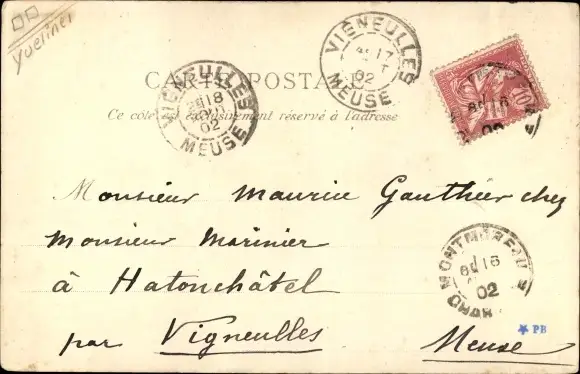 Yvelines
CARTE POSTALE
Ce côté est exclusivement réservé à l'adresse
VIGNEULLES
17
02
MEUSE
VIGNEULLES
18
02
MEUSE
10
16
02
Monsieur Maurice Gauthier chez
Monsieur Marinier
à Hatonchâtel
par Vigneulles Meuse
MONTMOREAU
16
02
CHAR
PB